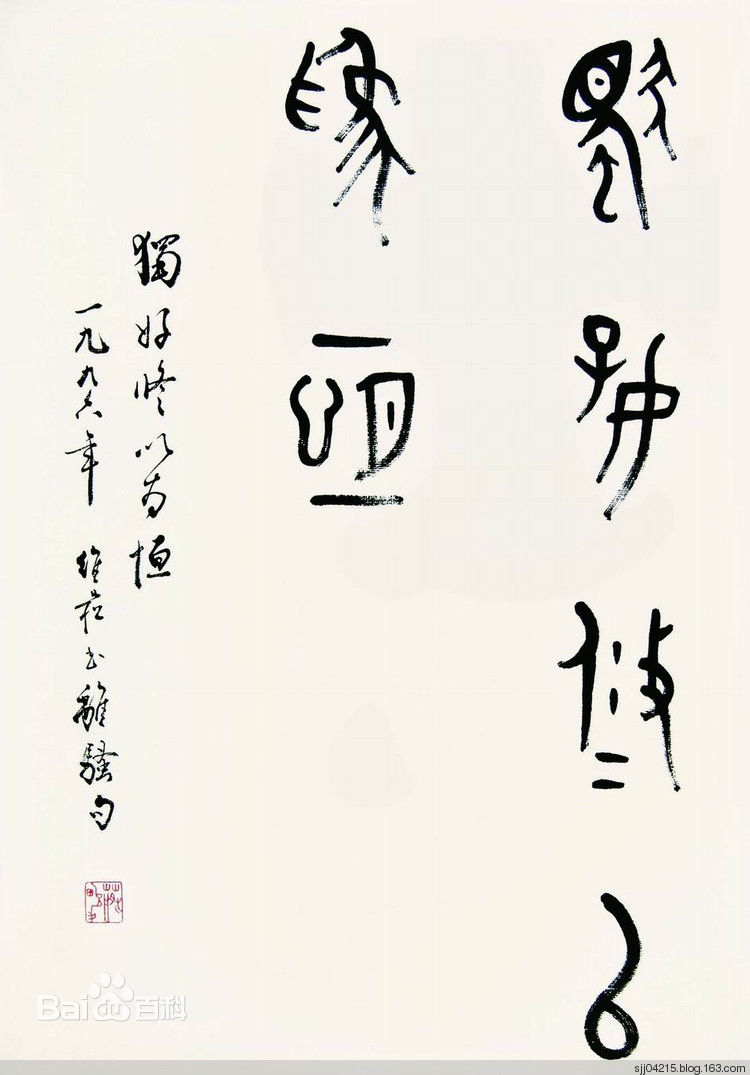 獨好修以
為恆
獨好修以為恒
一九九六年 維崧書離騷句
Bai百科
sjj04215.blog.163.com